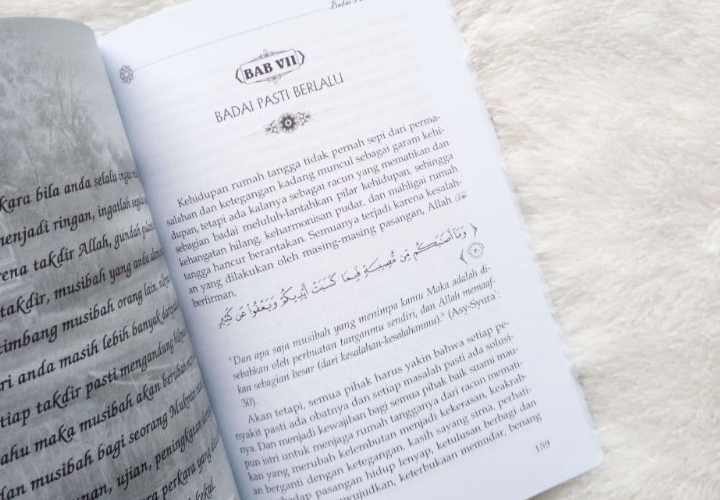 kara bila anda selalu ingat
menjadi ringan, ingatlah
rena takdir Allah, gundah
takdir, musibah yang anda
timbang musibah orang lain,
ri anda masih lebih banyak
tiap takdir pasti mengandung
ahu maka musibah akan berubah
dan musibah bagi seorang
nan, ujian, peningkatan
perkara yang
kekal.
BAB VII
BADAI PASTI BERLALU
Kehidupan rumah tangga tidak pernah sepi dari perma-
salahan dan ketegangan kadang muncul sebagai garam kehi-
dupan, tetapi ada kalanya sebagai racun yang mematikan dan
sebagian badai meluluh-lantahkan pilar kehidupan, sehingga
kehangatan hilang, keharmonisan pudar, dan mahligai rumah
tangga hancur berantakan. Semuanya terjadi karena kesalah-
an yang dilakukan oleh masing-masing pasangan, Allah
berfirman,
﴿ وَمَآ أَصَٰبَكُم مِّن مُّصِيبَةٍ فَبِمَا كَسَبَتْ أَيْدِيكُمْ وَيَعْفُوا۟ عَن كَثِيرٍ
﴾
"Dan apa saja musibah yang menimpa kamu Maka adalah di-
sebabkan oleh perbuatan tanganmu sendiri, dan Allah memaaf-
kan sebagian besar (dari kesalahan-kesalahanmu)." (Asy-Syura :
30).
Akan tetapi, semua pihak harus yakin bahwa setiap pe-
nyakit pasti ada obatnya dan setiap masalah pasti ada solusi-
nya. Dan menjadi kewajiban bagi semua pihak baik suami mau-
pun istri untuk menjaga rumah tangganya dari racun memati-
kan yang merubah kelembutan menjadi kekerasan, keakrab-
an berganti dengan ketegangan, kasih sayang sirna, perhati-
hadap pasangan hidup lenyap, ketulusan berbagi dan
wujudkan, keterbukaan memudar, benang
159